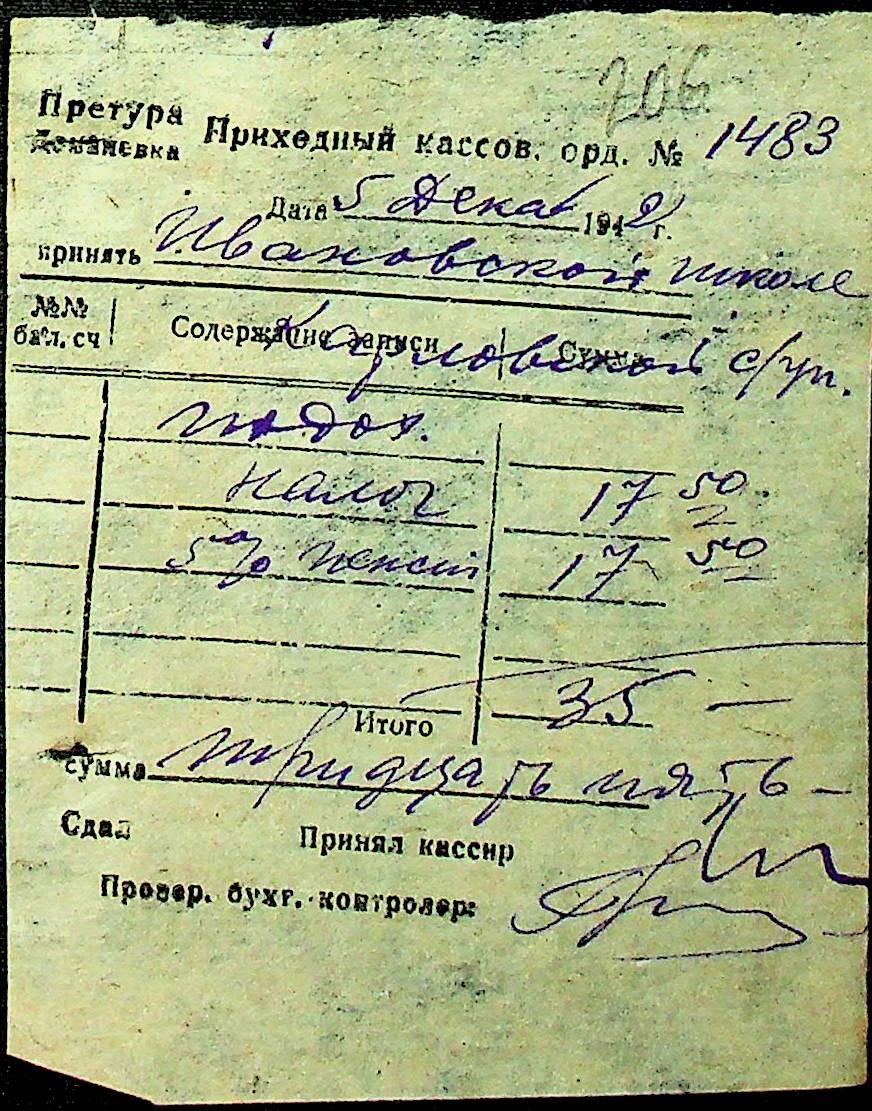 706
Претура Приходный кассов. орд. № 1483
Доманевка
Дата 5 Дека 1942 г.
принять Ивановской школе
№№ бал. сч Содержание записи Сумма
Карловской с/уп.
подох.
налог 17 50
5% пенсии 17 50
Итого 35 —
сумма тридцать пять —
Сдал Принял кассир
Провер. бухг. контролер: